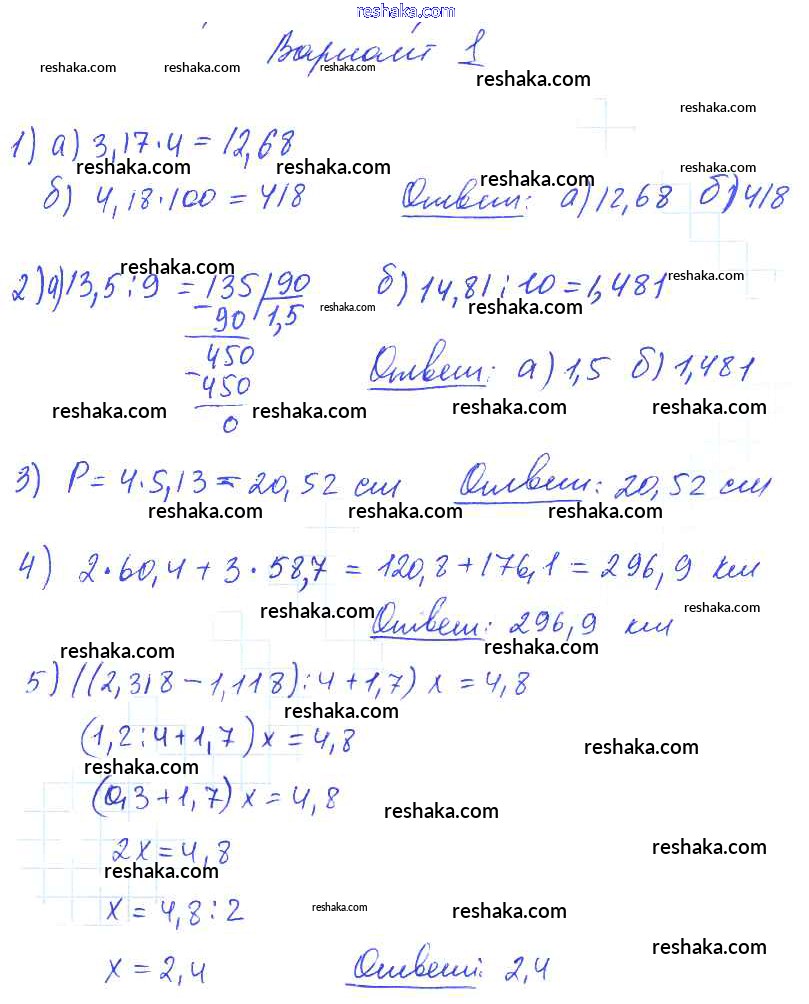 reshaka.com
Вариант 1
reshaka.com reshaka.com reshaka.com reshaka.com
reshaka.com
1) а) 3,17·4 = 12,68
reshaka.com reshaka.com reshaka.com
б) 4,18·100 = 418 Ответ: а) 12,68 б) 418
reshaka.com
2) а) 13,5:9 = 135 | 90 б) 14,81:10 = 1,481
reshaka.com reshaka.com reshaka.com
- 90 | 1,5
450
Ответ: а) 1,5 б) 1,481
- 450
reshaka.com reshaka.com reshaka.com reshaka.com
0
3) P = 4·5,13 = 20,52 см Ответ: 20,52 см
reshaka.com reshaka.com reshaka.com
4) 2·60,4 + 3·58,7 = 120,8 + 176,1 = 296,9 км
reshaka.com reshaka.com
Ответ: 296,9 км
reshaka.com reshaka.com
5) ((2,318 - 1,118):4 + 1,7) x = 4,8
reshaka.com
(1,2:4 + 1,7) x = 4,8
reshaka.com
reshaka.com
(0,3 + 1,7) x = 4,8
reshaka.com
2x = 4,8
reshaka.com
reshaka.com
x = 4,8:2
reshaka.com reshaka.com
reshaka.com
x = 2,4 Ответ: 2,4